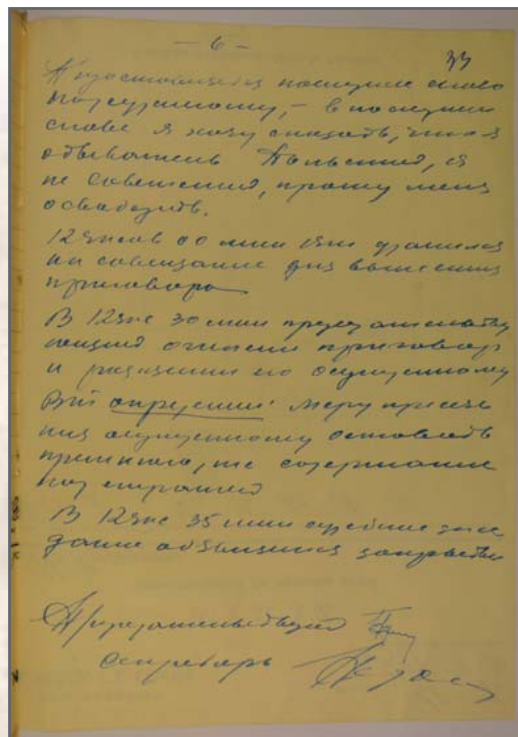 - 6 -
33
Предоставляется последнее слово
подсудимому, - в последнем
слове я хочу сказать, что я
обыватель Польский, я
не советский, прошу меня
освободить.
12 часов 00 мин удалился
на совещание для вынесения
приговора
В 12 час 30 мин председательству
ющий огласил приговор
и разъяснил его осужденному
определил: меру пресече
ния осужденному оставить
прежнюю, т.е. содержание
под стражей
В 12 час 35 мин судебное засе
дание объявлено закрытым
Председательствующий
Секретарь